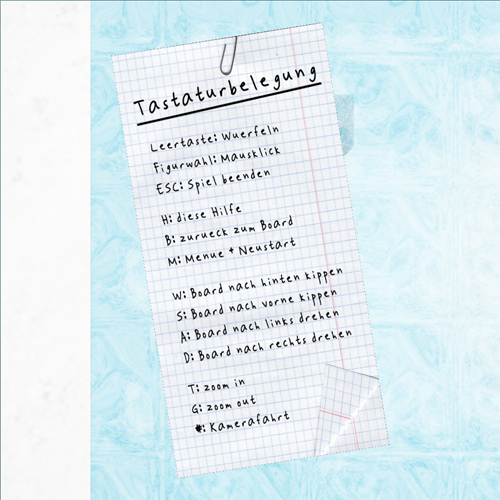 Tastaturbelegung
Leertaste: Wuerfeln
Figurwahl: Mausklick
ESC: Spiel beenden
H: diese Hilfe
B: zurueck zum Board
M: Menue + Neustart
W: Board nach hinten kippen
S: Board nach vorne kippen
A: Board nach links drehen
D: Board nach rechts drehen
T: zoom in
G: zoom out
#: Kamerafahrt